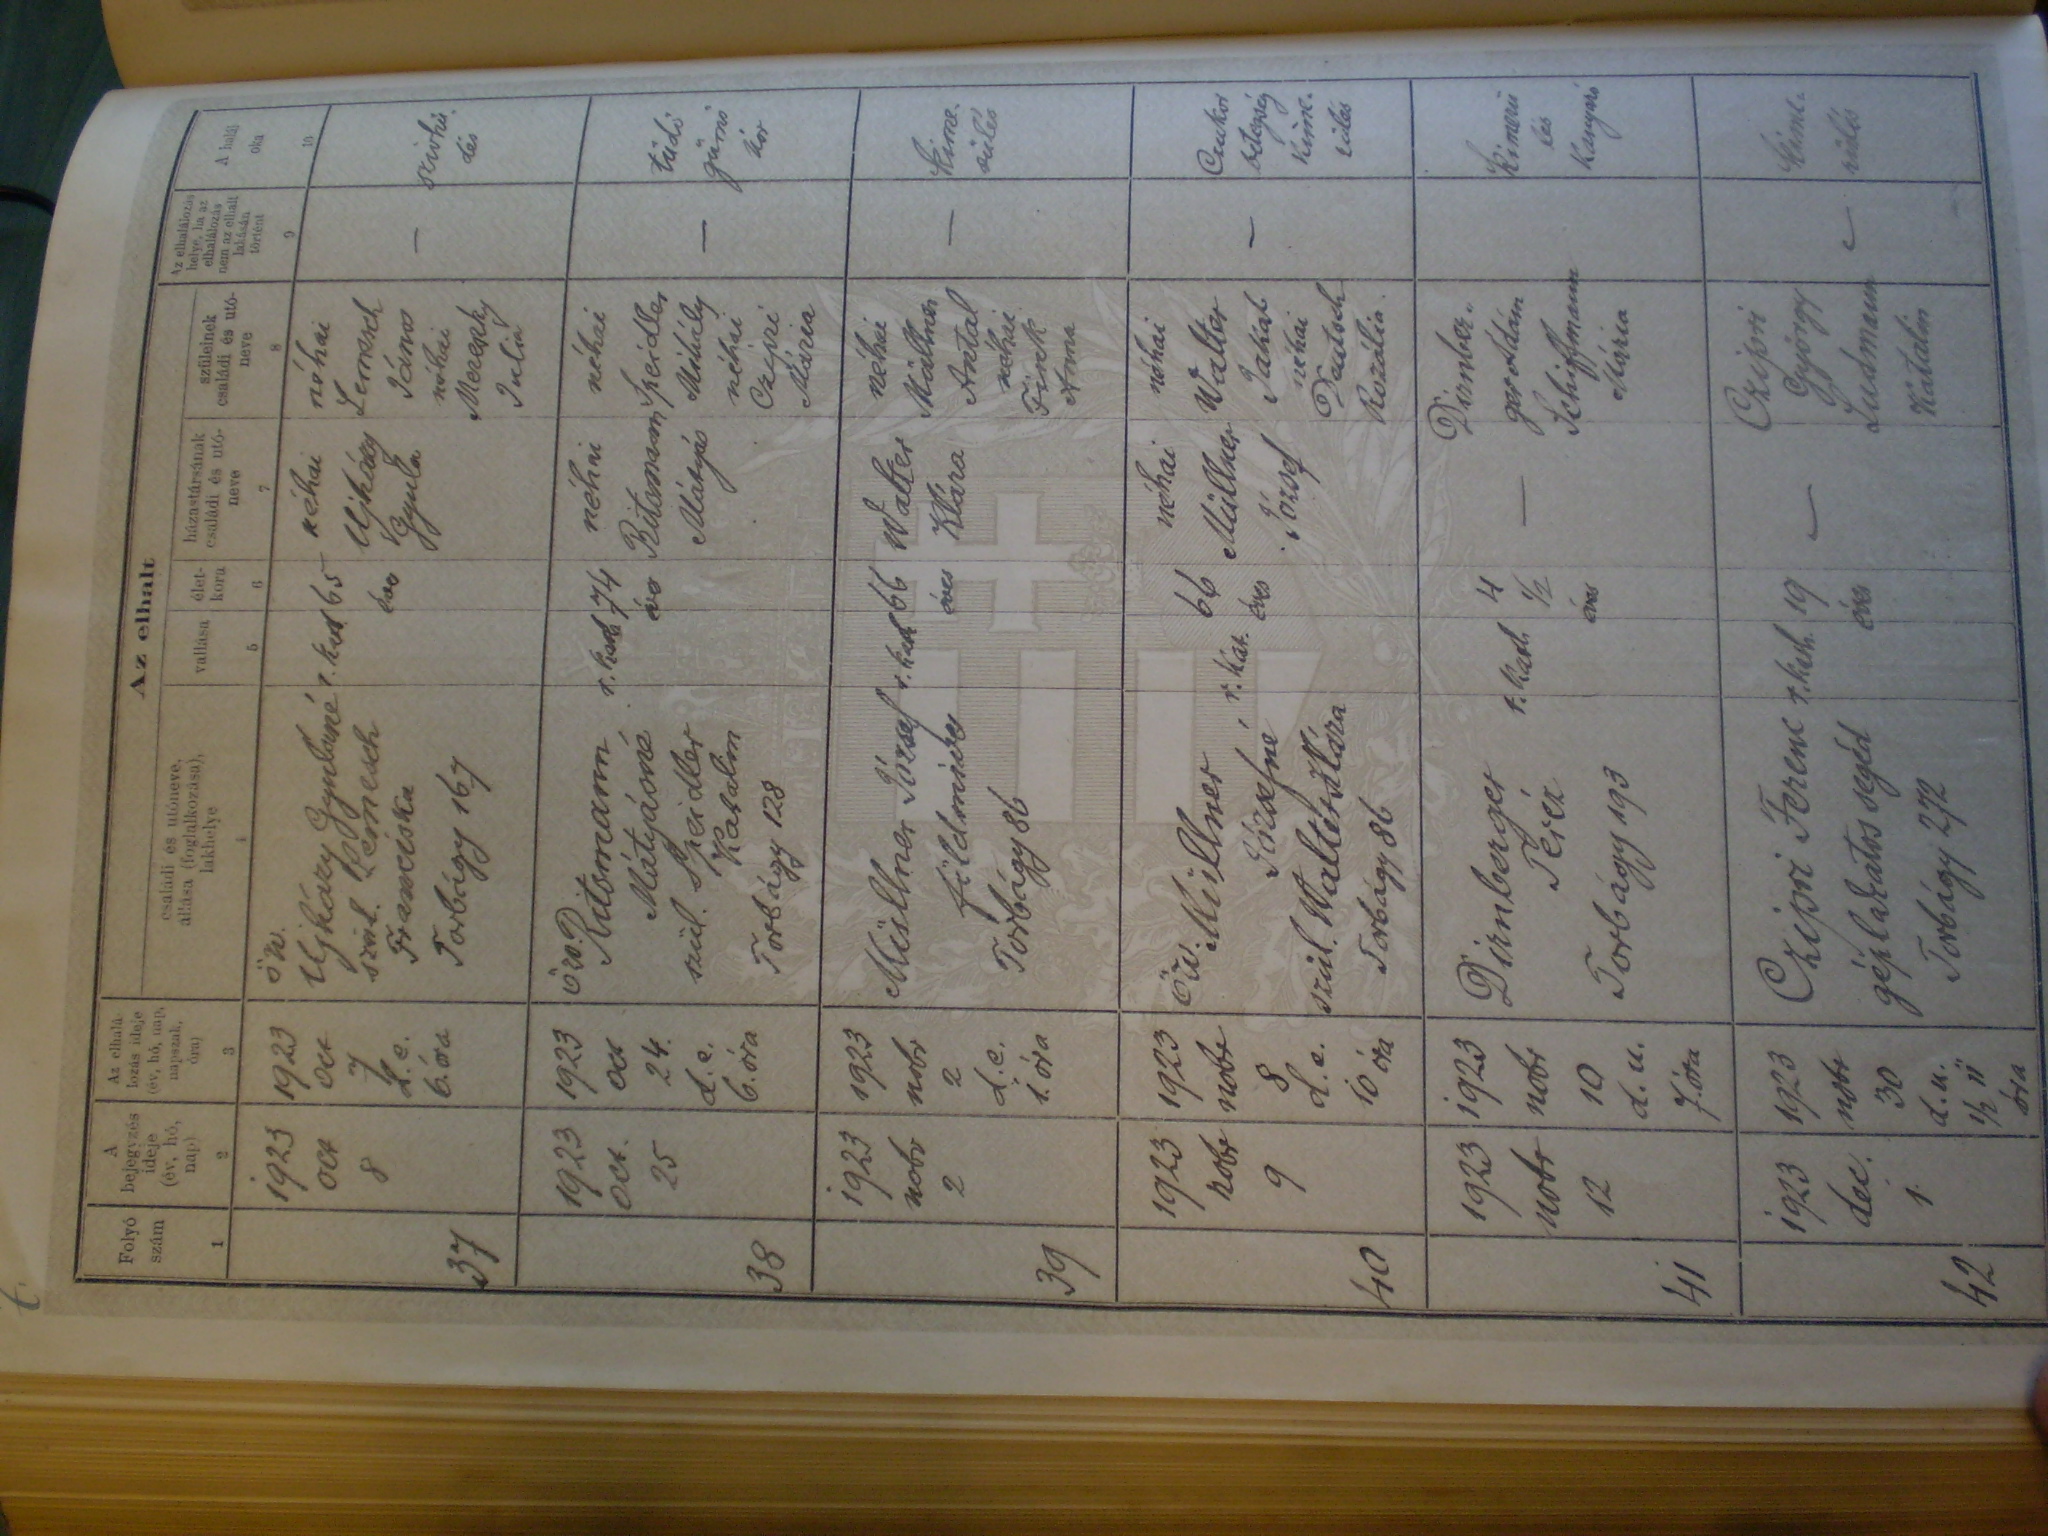 Az elhalt
Folyó
szám
A
bejegyzés
ideje
(év, hó,
nap)
Az elhalá-
lozás ideje
(év, hó, nap,
napszak,
óra)
családi és utóneve,
állása (foglalkozása),
lakhelye
vallása
élet-
kora
házastársának
családi és utó-
neve
szüleinek
családi és utó-
neve
Az elhalálozás
helye, ha az
elhalálozás
nem az elhalt
lakásán
történt
A halál
oka
1
2
3
4
5
6
7
8
9
10
37
1923
oct
8
1923
oct
7
d. e.
6. óra
özv.
Ujházy Gyuláné
szül. Lemesch
Franciska
Torbágy 167
r. kat
65
éves
néhai
Ujházy
Gyula
néhai
Lemesch
János
néhai
Julia
—
szívhű-
dés
38
1923
oct.
25
1923
oct
24.
d. e.
6. óra
özv.
Ritsmann
Mátyásné
szül. Speidler
Katalin
Torbágy 128
r. kath
74
éves
néhai
Ritsmann
Mátyás
néhai
Speidler
Mihály
néhai
Czipri
Mária
—
tüdő
gümő
kór
39
1923
nobr
2
1923
nobr
2
d. e.
1. óra
Müllner József
földmives
Torbágy 86
r. kath
66
éves
Walter
Klára
néhai
Müllner
Antal
néhai
Finck
Anna
—
kime-
rülés
40
1923
nobr
9
1923
nobr
8
d. e.
10 óra
özv. Müllner
Józsefné
szül. Walter Klára
Torbágy 86
r. kat.
66
éves
néhai
Müllner
József
néhai
Walter
Jakab
néhai
Deutsch
Rozália
—
Czukor
betegség
Kime-
rülés
41
1923
nobr
12
1923
nobr
10
d. u.
7. óra
Dirnberger
Teréz
Torbágy 193
r. kath
4
1/2
éves
—
Dirnber-
ger Ádám
Schiffmann
Mária
Kimerü
lés
Kanyaró
42
1923
dec.
1.
1923
nobr
30
d. u.
1/2 11
óra
Czipri Ferenc
géplakatos segéd
Torbágy 272
r. kath.
19
éves
—
Czipri
György
Ludmann
Katalin
—
kime-
rülés